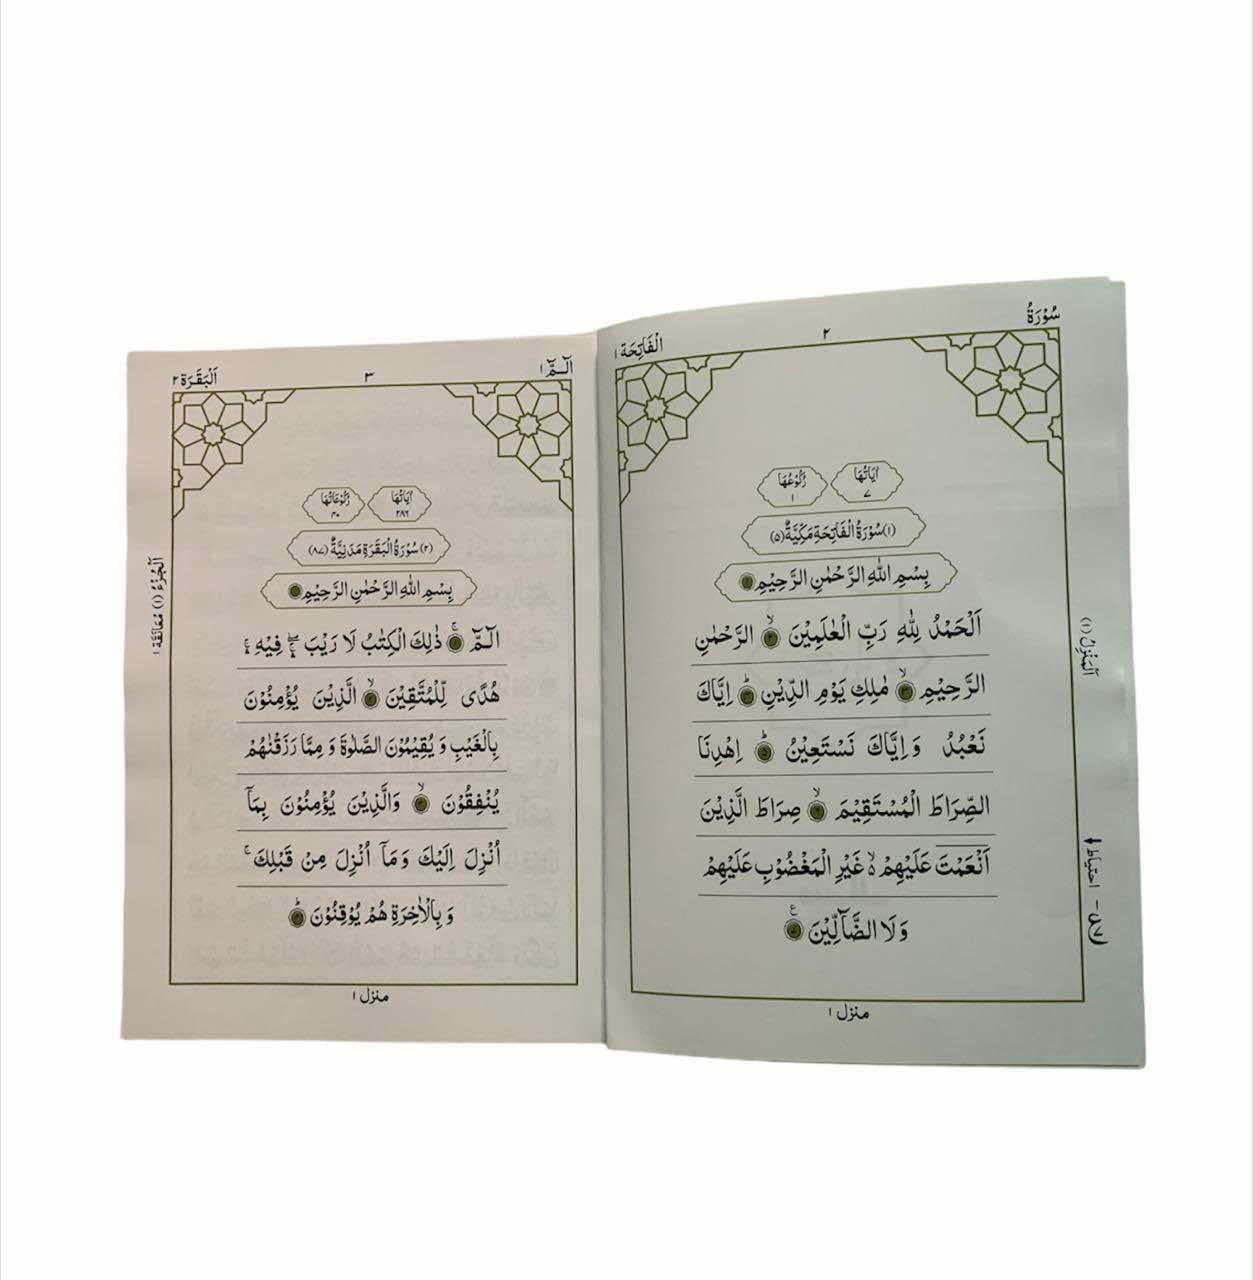 سُوْرَةُ
٢
الْفَاتِحَة ١
اٰيَاتُهَا
٧
رُكُوْعُهَا
١
(١) سُوْرَةُ الْفَاتِحَةِ مَكِّيَّةٌ (٥)
بِسْمِ اللّٰهِ الرَّحْمٰنِ الرَّحِيْمِ ١
اَلْحَمْدُ لِلّٰهِ رَبِّ الْعٰلَمِيْنَ ۙ ٢ الرَّحْمٰنِ
الرَّحِيْمِ ۙ ٣ مٰلِكِ يَوْمِ الدِّيْنِ ۭ اِيَّاكَ
نَعْبُدُ وَاِيَّاكَ نَسْتَعِيْنُ ۭ ٥ اِهْدِنَا
الصِّرَاطَ الْمُسْتَقِيْمَ ۙ ٦ صِرَاطَ الَّذِيْنَ
اَنْعَمْتَ عَلَيْهِمْ ۙ۬ غَيْرِ الْمَغْضُوْبِ عَلَيْهِمْ
وَلَا الضَّآلِّيْنَ ٧ ع
اَلْمَنْزِلُ (١)
احتياط
منزل ١
الٓـمّٓ ١
٣
اَلْبَقَرَة ٢
اٰيَاتُهَا
٢٨٦
رُكُوْعَاتُهَا
٤٠
(٢) سُوْرَةُ الْبَقَرَةِ مَدَنِيَّةٌ (٨٧)
بِسْمِ اللّٰهِ الرَّحْمٰنِ الرَّحِيْمِ
الٓـمّٓ ۚ ١ ذٰلِكَ الْكِتٰبُ لَا رَيْبَ ۖۛۚ فِيْهِ ۛۚ
هُدًى لِّلْمُتَّقِيْنَ ۙ ٢ الَّذِيْنَ يُؤْمِنُوْنَ
بِالْغَيْبِ وَيُقِيْمُوْنَ الصَّلٰوةَ وَمِمَّا رَزَقْنٰهُمْ
يُنْفِقُوْنَ ۙ ٣ وَالَّذِيْنَ يُؤْمِنُوْنَ بِمَآ
اُنْزِلَ اِلَيْكَ وَمَآ اُنْزِلَ مِنْ قَبْلِكَ ۚ
وَبِالْاٰخِرَةِ هُمْ يُوْقِنُوْنَ ۭ ٤
اَلْجُزْءُ (١) مُعَانَقَة ١
منزل ١